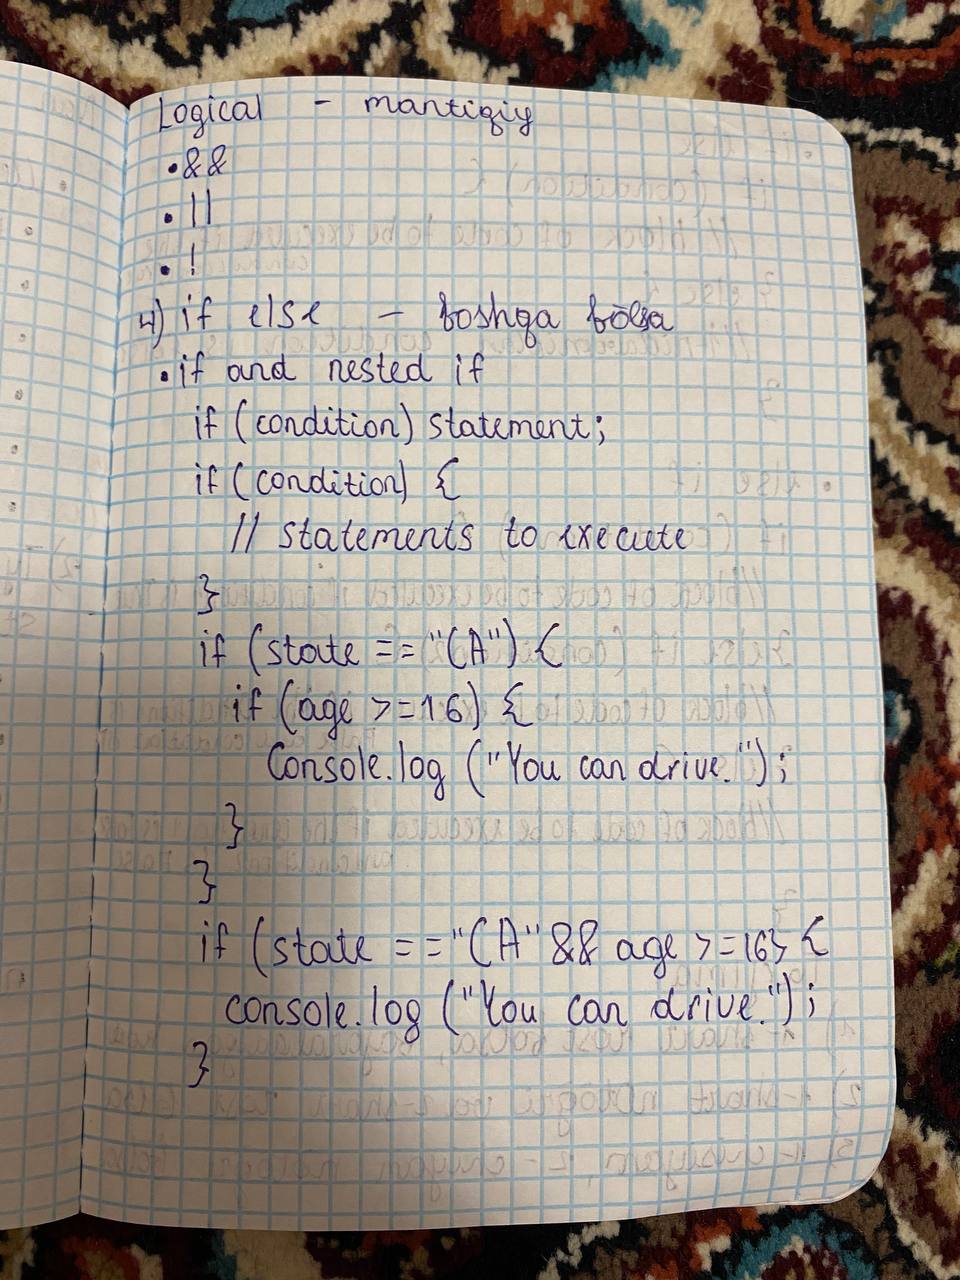 Logical - mantiqiy
• &&
• ||
• !
4) if else - boshqa bo'lsa
• if and nested if
if (condition) statement;
if (condition) {
// statements to execute
}
if (state == "CA") {
if (age >= 16) {
Console.log ("You can drive.");
}
}
if (state == "CA" && age >= 16} {
console.log ("You can drive.");
}